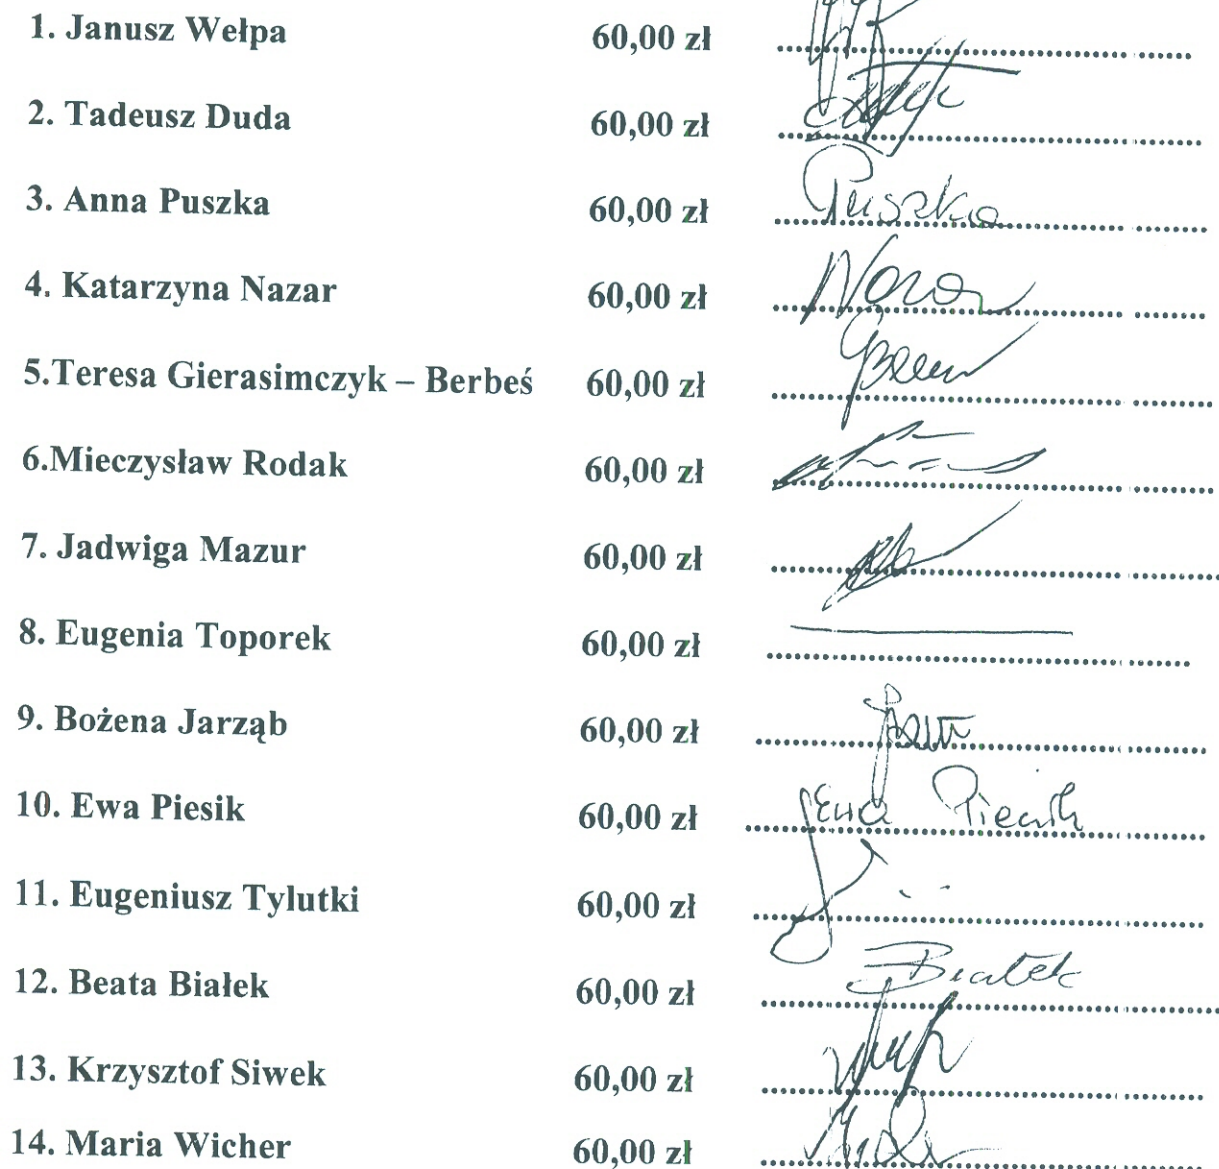 1. Janusz Wełpa 60,00 zł
2. Tadeusz Duda 60,00 zł
3. Anna Puszka 60,00 zł Puszka
4. Katarzyna Nazar 60,00 zł
5.Teresa Gierasimczyk – Berbeś 60,00 zł
6.Mieczysław Rodak 60,00 zł
7. Jadwiga Mazur 60,00 zł
8. Eugenia Toporek 60,00 zł
9. Bożena Jarząb 60,00 zł
10. Ewa Piesik 60,00 zł Ewa Piesik
11. Eugeniusz Tylutki 60,00 zł
12. Beata Białek 60,00 zł Białek
13. Krzysztof Siwek 60,00 zł
14. Maria Wicher 60,00 zł